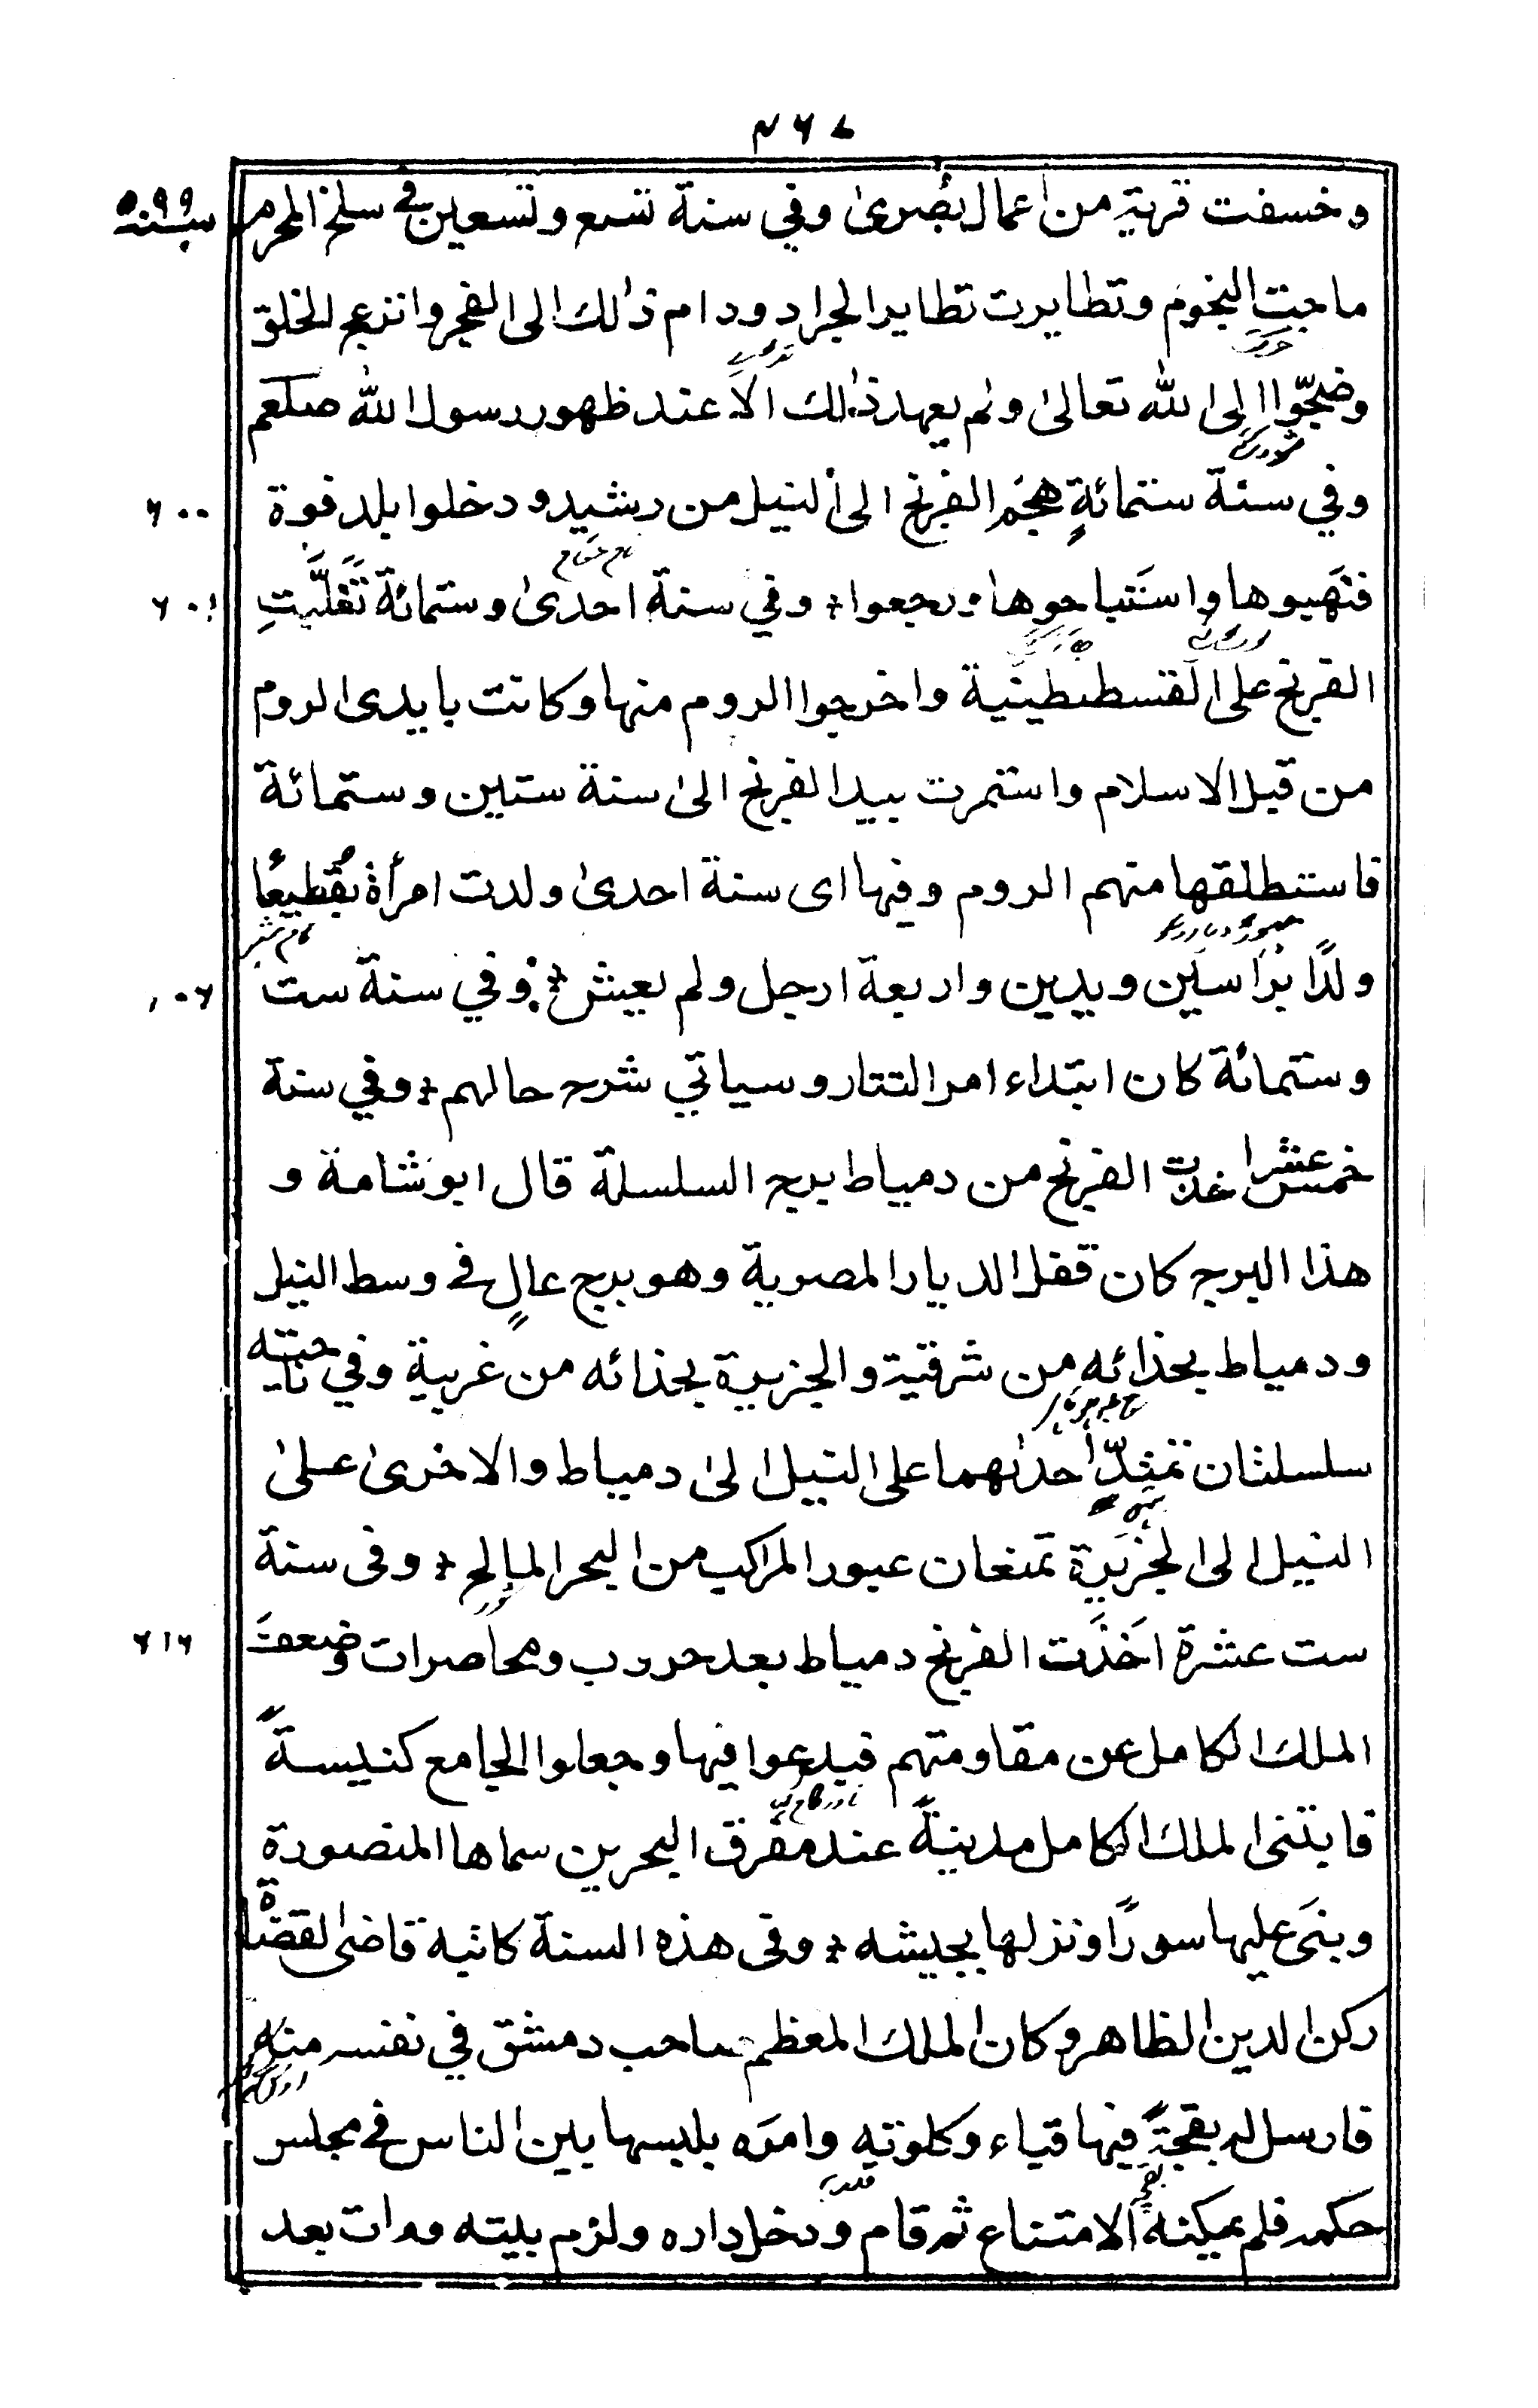 ٤٦٨
وخسفت قرية من اعمال بُصرىٰ وفي سنة تسع وتسعين في سلخ المحرم سنة ٥٩٩
ماجتِ النجوم وتطايرت تطاير الجراد ودام ذٰلك الى الفجر وانزعج الخلق
وضجّوا الى الله تعالىٰ ولم يعهد ذٰلك الا عند ظهور رسول الله صلعم
وفي سنة ستمائةٍ هجم الفرنج الى النيل من رشيد ودخلوا بلد فوة ٦٠٠
فنهبوها واستباحوها ورجعوا وفي سنة احدىٰ وستمائة تَغَلَّبَتِ ٦٠١
الفرنج على القسطنطينية واخرجوا الروم منها وكانت بايدى الروم
من قبل الاسلام واستمرت بيد الفرنج الىٰ سنة ستين وستمائة
فاستطلقها منهم الروم وفيها اى سنة احدىٰ ولدت امرأة بقُطيعًا
ولدًا براسَين ويدين واربعة ارجل ولم يعيش وفي سنة ست ٦٠٦
وستمائة كان ابتداء امر التتار وسياتي شرح حالهم وفي سنة
خمس عشر اخذت الفرنج من دمياط برج السلسلة قال ابو شامة و
هذا البرج كان قفل الديار المصرية وهو برج عالٍ في وسط النيل
ودمياط بحذائه من شرقية والجزيرة بحذائه من غربية وفي ناحيته
سلسلتان تمتدّ احدٰهما على النيل الىٰ دمياط والاخرىٰ علىٰ
النيل الى الجزيرة تمنعان عبور المراكب من البحر المالح وفى سنة
ست عشرة اخذَت الفرنج دمياط بعد حروب ومحاصرات وضعفَ ٦١٦
الملك الكامل عن مقاومتهم فبدعوا فيها وجعلوا الجامع كنيسةً
فابتنى الملك الكامل مدينةً عند مفرق البحرين سماها المنصورة
وبنىٰ عليها سورًا ونزلها بجيشه وفى هذه السنة كاتبه قاضى القضاة
ركن الدين الظاهر وكان الملك المعظم صاحب دمشق في نفسه منه
فارسل له بقجةً فيها قباء وكلوته وامره بلبسها بين الناس في مجلس
حكمه فلم يمكنه الامتناع ثم قام ودخل داره ولزم بيته ومات بعد